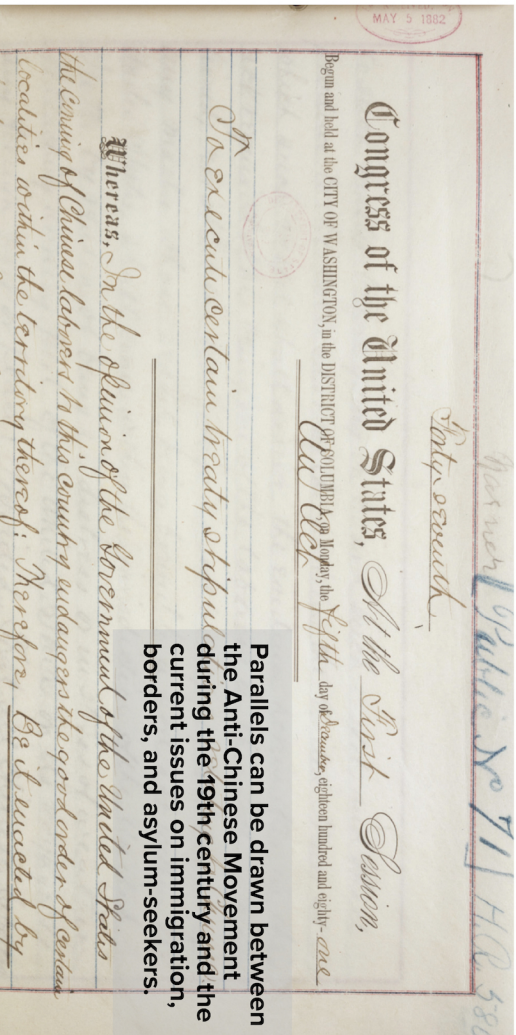 MAY 5 1882
Public No 71
H.R. 58
Forty-seventh
Congress of the United States, At the First Session,
Begun and held at the CITY OF WASHINGTON, in the DISTRICT OF COLUMBIA, on Monday, the fifth day of December, eighteen hundred and eighty-one
An Act
To execute certain treaty stipul
Whereas, In the opinion of the Government of the United States
the coming of Chinese laborers to this country endangers the good order of certain
localities within the territory thereof: Therefore, Be it enacted by
Parallels can be drawn between
the Anti-Chinese Movement
during the 19th century and the
current issues on immigration,
borders, and asylum-seekers.